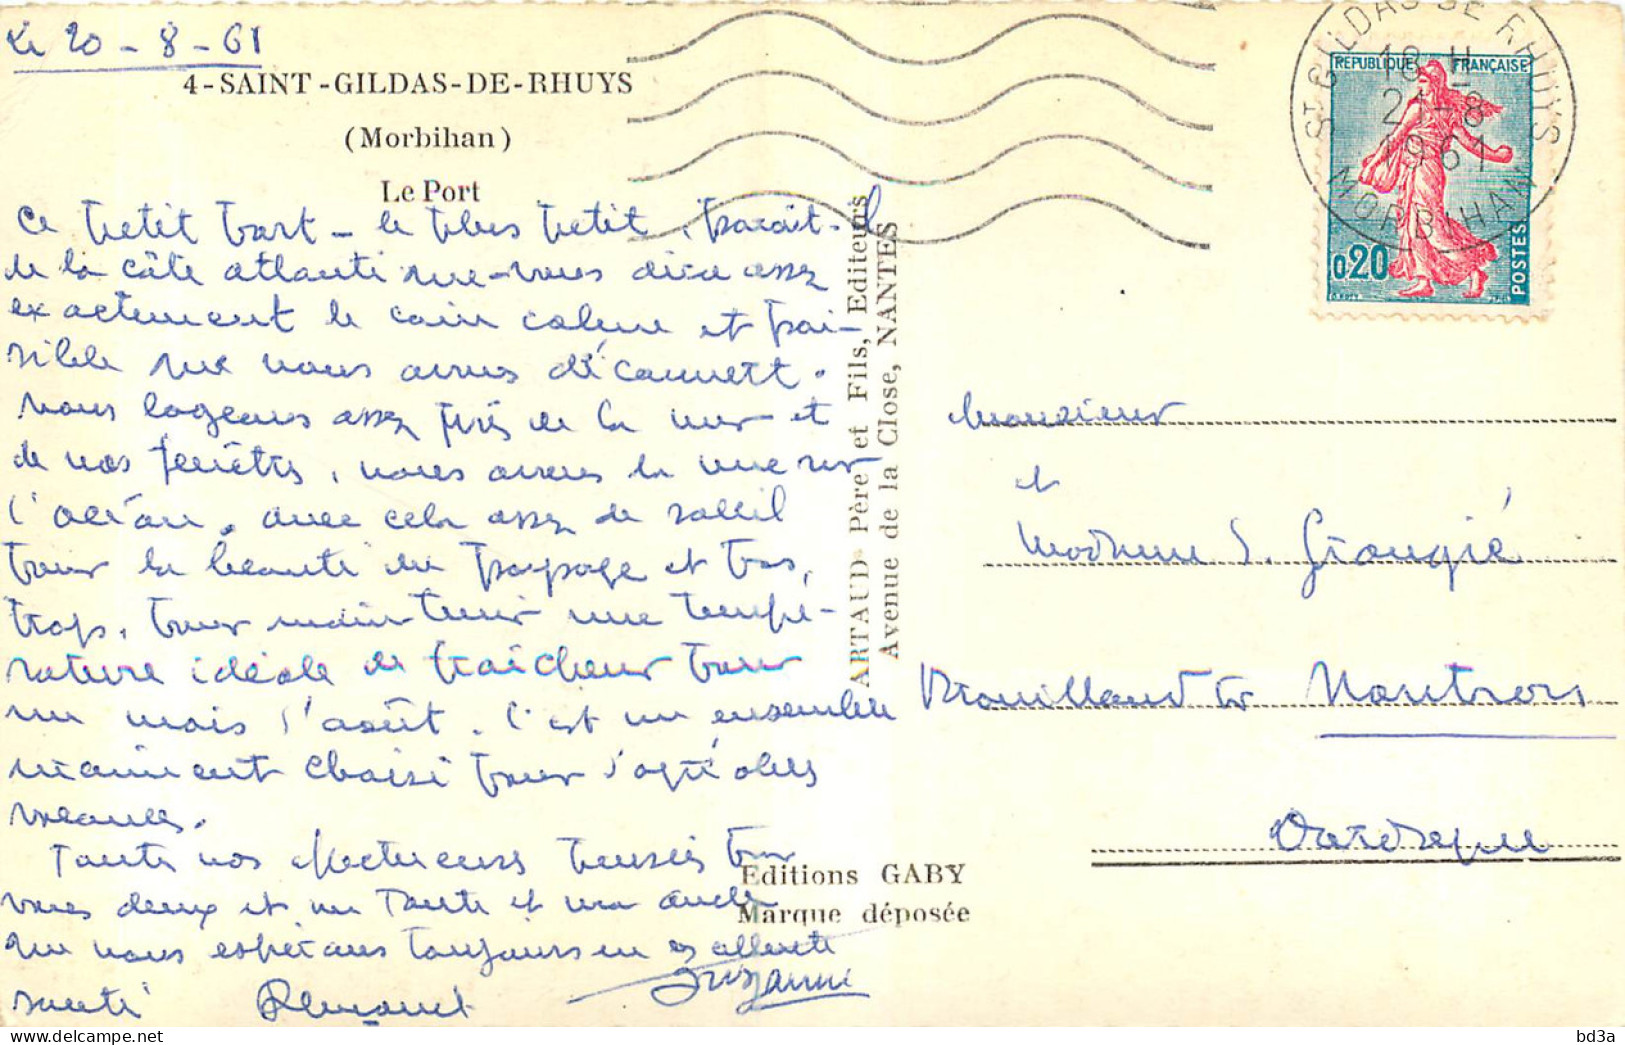 Le 20 - 8 - 61
4-SAINT-GILDAS-DE-RHUYS
(Morbihan)
Le Port
Ce petit port - le plus petit, paraît-il
de la côte atlantique - vous dira assez
exactement le coin calme et pai-
sible que nous avons découvert.
Nous logeons assez près de la mer et
de nos fenêtres, nous avons la vue sur
l'océan. avec cela assez de soleil
pour la beauté du paysage et pas,
trop, pour maintenir une tempé-
rature idéale de fraîcheur pour
un mois d'août. C'est un ensemble
vraiment choisi pour d'agréables
vacances.
Toutes nos affectueuses pensées pour
vous deux et ma Tante et mon oncle
que nous espérons toujours en excellente
santé
Suzanne
ARTAUD Père et Fils, Editeurs
Avenue de la Close, NANTES
Editions GABY
Marque déposée
ST GILDAS DE RHUYS
18 H
21-8
1961
MORBIHAN
REPUBLIQUE FRANÇAISE
0,20
POSTES
Monsieur
et
Madame S.
Dordogne
bd3a